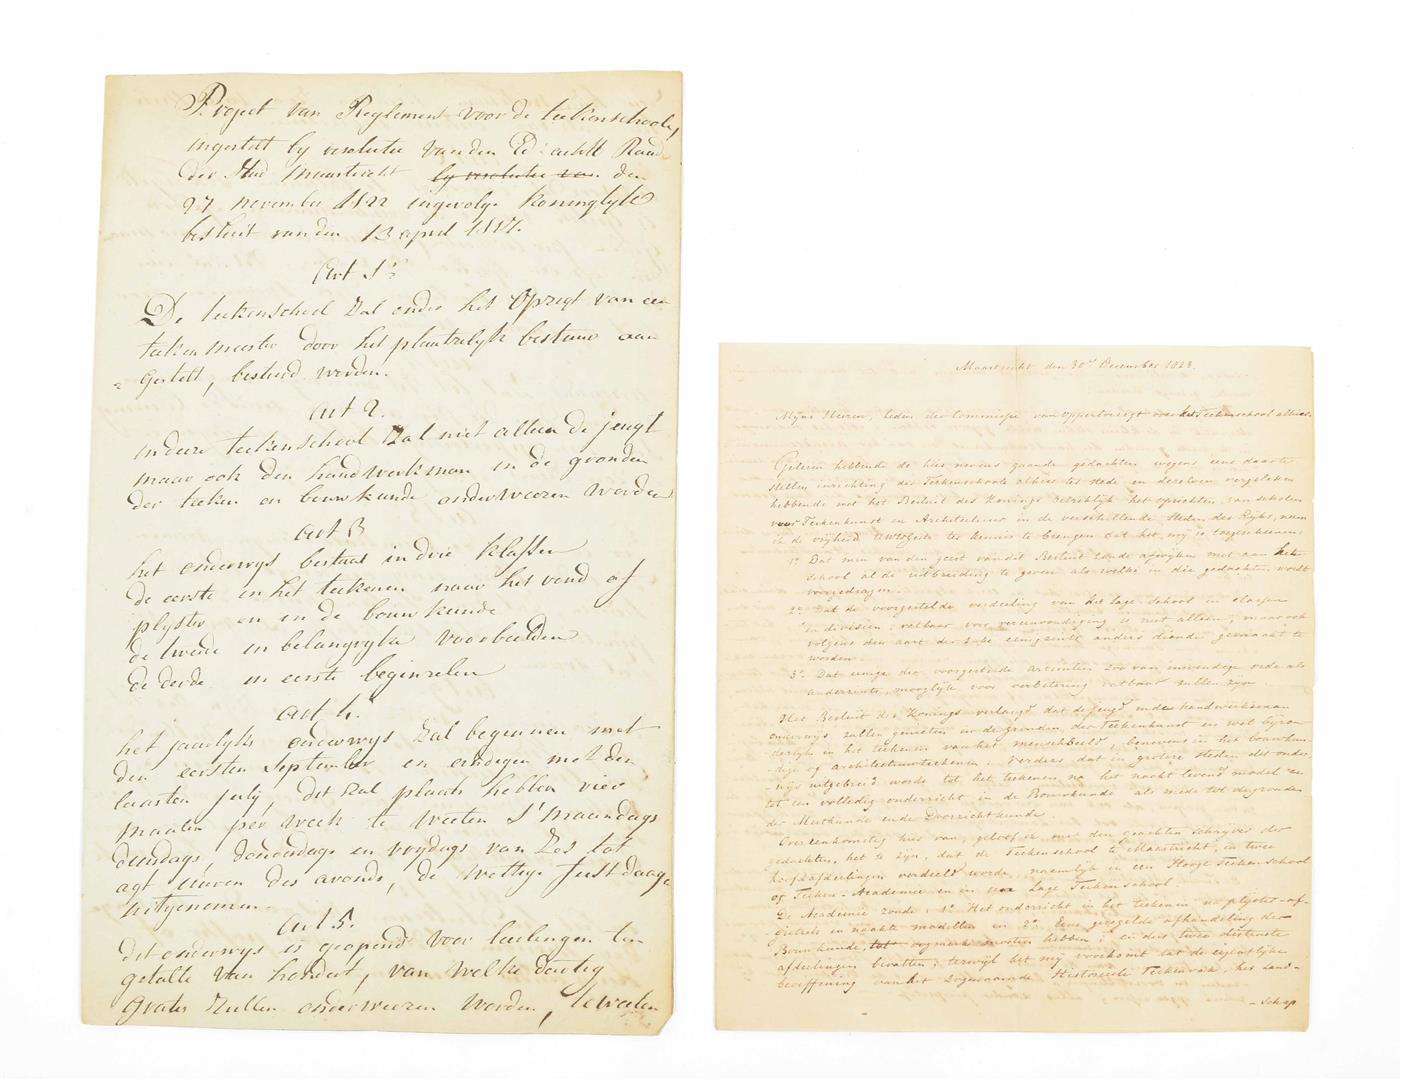 Project van Reglement voor de teekenschoole,
ingesteld by resolutie van den Ed: achtb Raad
der Stad Maastricht by resolutie van den
27 november 1822 ingevolge koninglyk
besluit van den 13 april 1817.
Art 1.
De teekenschool zal onder het opzigt van een
teekenmeester door het plaatselyk bestuur aan
= gesteld, bestierd werden.
art 2.
in deze teekenschool zal niet alleen de jeugt
maar ook den handwerkman in de gronden
der teeken en bouwkunde onderweezen worden
art 3
het onderwys bestaat in drie klassen
de eerste in het teekenen naar het rond of
plyster en in de bouwkunde
de twede in belangryke voorbeelden
de derde in eerste beginzelen
art 4.
het jaarlyks onderwys zal beginnen met
den eersten September en eindigen met den
laasten july, dit zal plaats hebben vier
maalen per week te weeten S'maandags
dinsdags, donderdags en vrydags van zes tot
agt uuren des avonds, de wettige feestdaage
uitgenomen.
art 5.
dit onderwys is geopend voor leerlingen ten
getalle van hondert, van welke dertig
gratis zullen onderweezen worden, te weeten
Maastricht den 30n December 1823.
Myne Heeren, leden der Commissie van oppertoezigt over het Teekenschool alhier.
Gelezen hebbende de hier nevens gaande gedachten wegens eene daar te
stellen inrichting des Teekenschools alhier ter stede en dezelven vergeleken
hebbende met het Besluit des Konings betreklyk het oprichten van scholen
voor Teekenkunst en Architectuur in de verschillende steden des Ryks, neem
ik de vryheid UWEG ter kennis te brengen dat het my is toegescheenen:
1o. Dat men van den geest van dit Besluit zoude afwyken met aan het
school al de uitbreiding te geven als welke in die gedachten wordt
voorgedragen.
2o. Dat de voorgestelde verdeeling van het lage school in classen
en divisien, vatbaar voor vereenvoudiging is niet alleen, maar ook
volgens den aart der zake eenigsints anders diende gemaakt te
worden.
3o. Dat eenige der voorgestelde artikelen zoo van inwendige orde als
anderzints, mooglyk voor verbetering vatbaar zullen zyn.
Het Besluit des Konings verlangt dat de jeugd en de handwerksman
onderwijs zullen genieten in de gronden der Teekenkunst en wel byzon
=derlyk in het teekenen van het menschbeeld, benevens in het bouwkun
=dige of architectuurteekenen. Verders dat in grotere steden dit onder
=wys uitgebreid worde tot het teekenen na het naakt levend model en
tot een volledig onderricht in de Bouwkunde als mede tot de gronden
der Meetkunde en de Doorzichtkunde
Overeenkomstig hier van, geloof ik met den geachten schryver der
gedachten, het te zyn, dat de Teekenschool te Maastricht, in twee
hoofdafdeelingen verdeeld worde, naamelyk in een Hooge Teekenschool
of Teeken-Academie en in een Lage Teekenschool.
De Academie zoude, 1o. Het onderricht in het teekenen na plyster-af-
=gietsels en naakte modellen en 2o. Eene geregelde afhandeling der
Bouwkunde, tot oogmerk moeten hebben; en dus twee distincte
afdeelingen bevatten; terwyl het my voorkomt dat de eigenlyke
beoeffening van het zogenaamde Historiesche Teekenvak, het land-
- schap